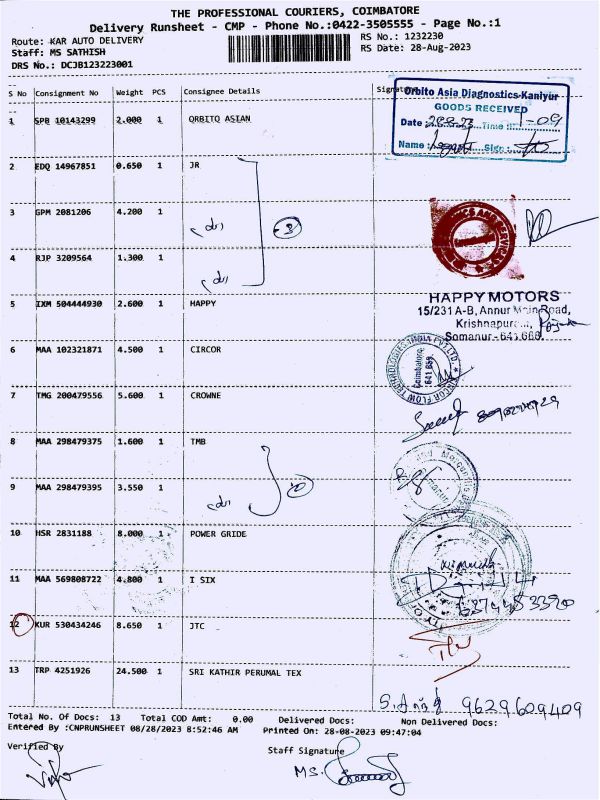 THE PROFESSIONAL COURIERS, COIMBATORE
Delivery Runsheet - CMP - Phone No.:0422-3505555 - Page No.:1
Route: KAR AUTO DELIVERY RS No.: 1232230
Staff: MS SATHISH RS Date: 28-Aug-2023
DRS No.: DCJB123223001
S No Consignment No Weight PCS Consignee Details Signature
Orbito Asia Diagnostics-Kaniyur
GOODS RECEIVED
Date : 28.8.23 Time : 1-09
Name : Sign :
1 SPB 10143299 2.000 1 ORBITO ASIAN
2 EDQ 14967851 0.650 1 JR
3 GPM 2081206 4.200 1
3
4 RJP 3209564 1.300 1
HAPPY MOTORS
15/231 A-B, Annur Main Road,
Krishnapuram,
Somanur - 641 668.
5 IXM 504444930 2.600 1 HAPPY
6 MAA 102321871 4.500 1 CIRCOR
Coimbatore
641 659.
7 TMG 200479556 5.600 1 CROWNE
8 MAA 298479375 1.600 1 TMB
9 MAA 298479395 3.550 1
10 HSR 2831188 8.000 1 POWER GRIDE
11 MAA 569808722 4.800 1 I SIX
12 KUR 530434246 8.650 1 JTC
13 TRP 4251926 24.500 1 SRI KATHIR PERUMAL TEX
9629609409
Total No. Of Docs: 13 Total COD Amt: 0.00 Delivered Docs: Non Delivered Docs:
Entered By :CNPRUNSHEET 08/28/2023 8:52:46 AM Printed On: 28-08-2023 09:47:04
Verified By Staff Signature
MS.